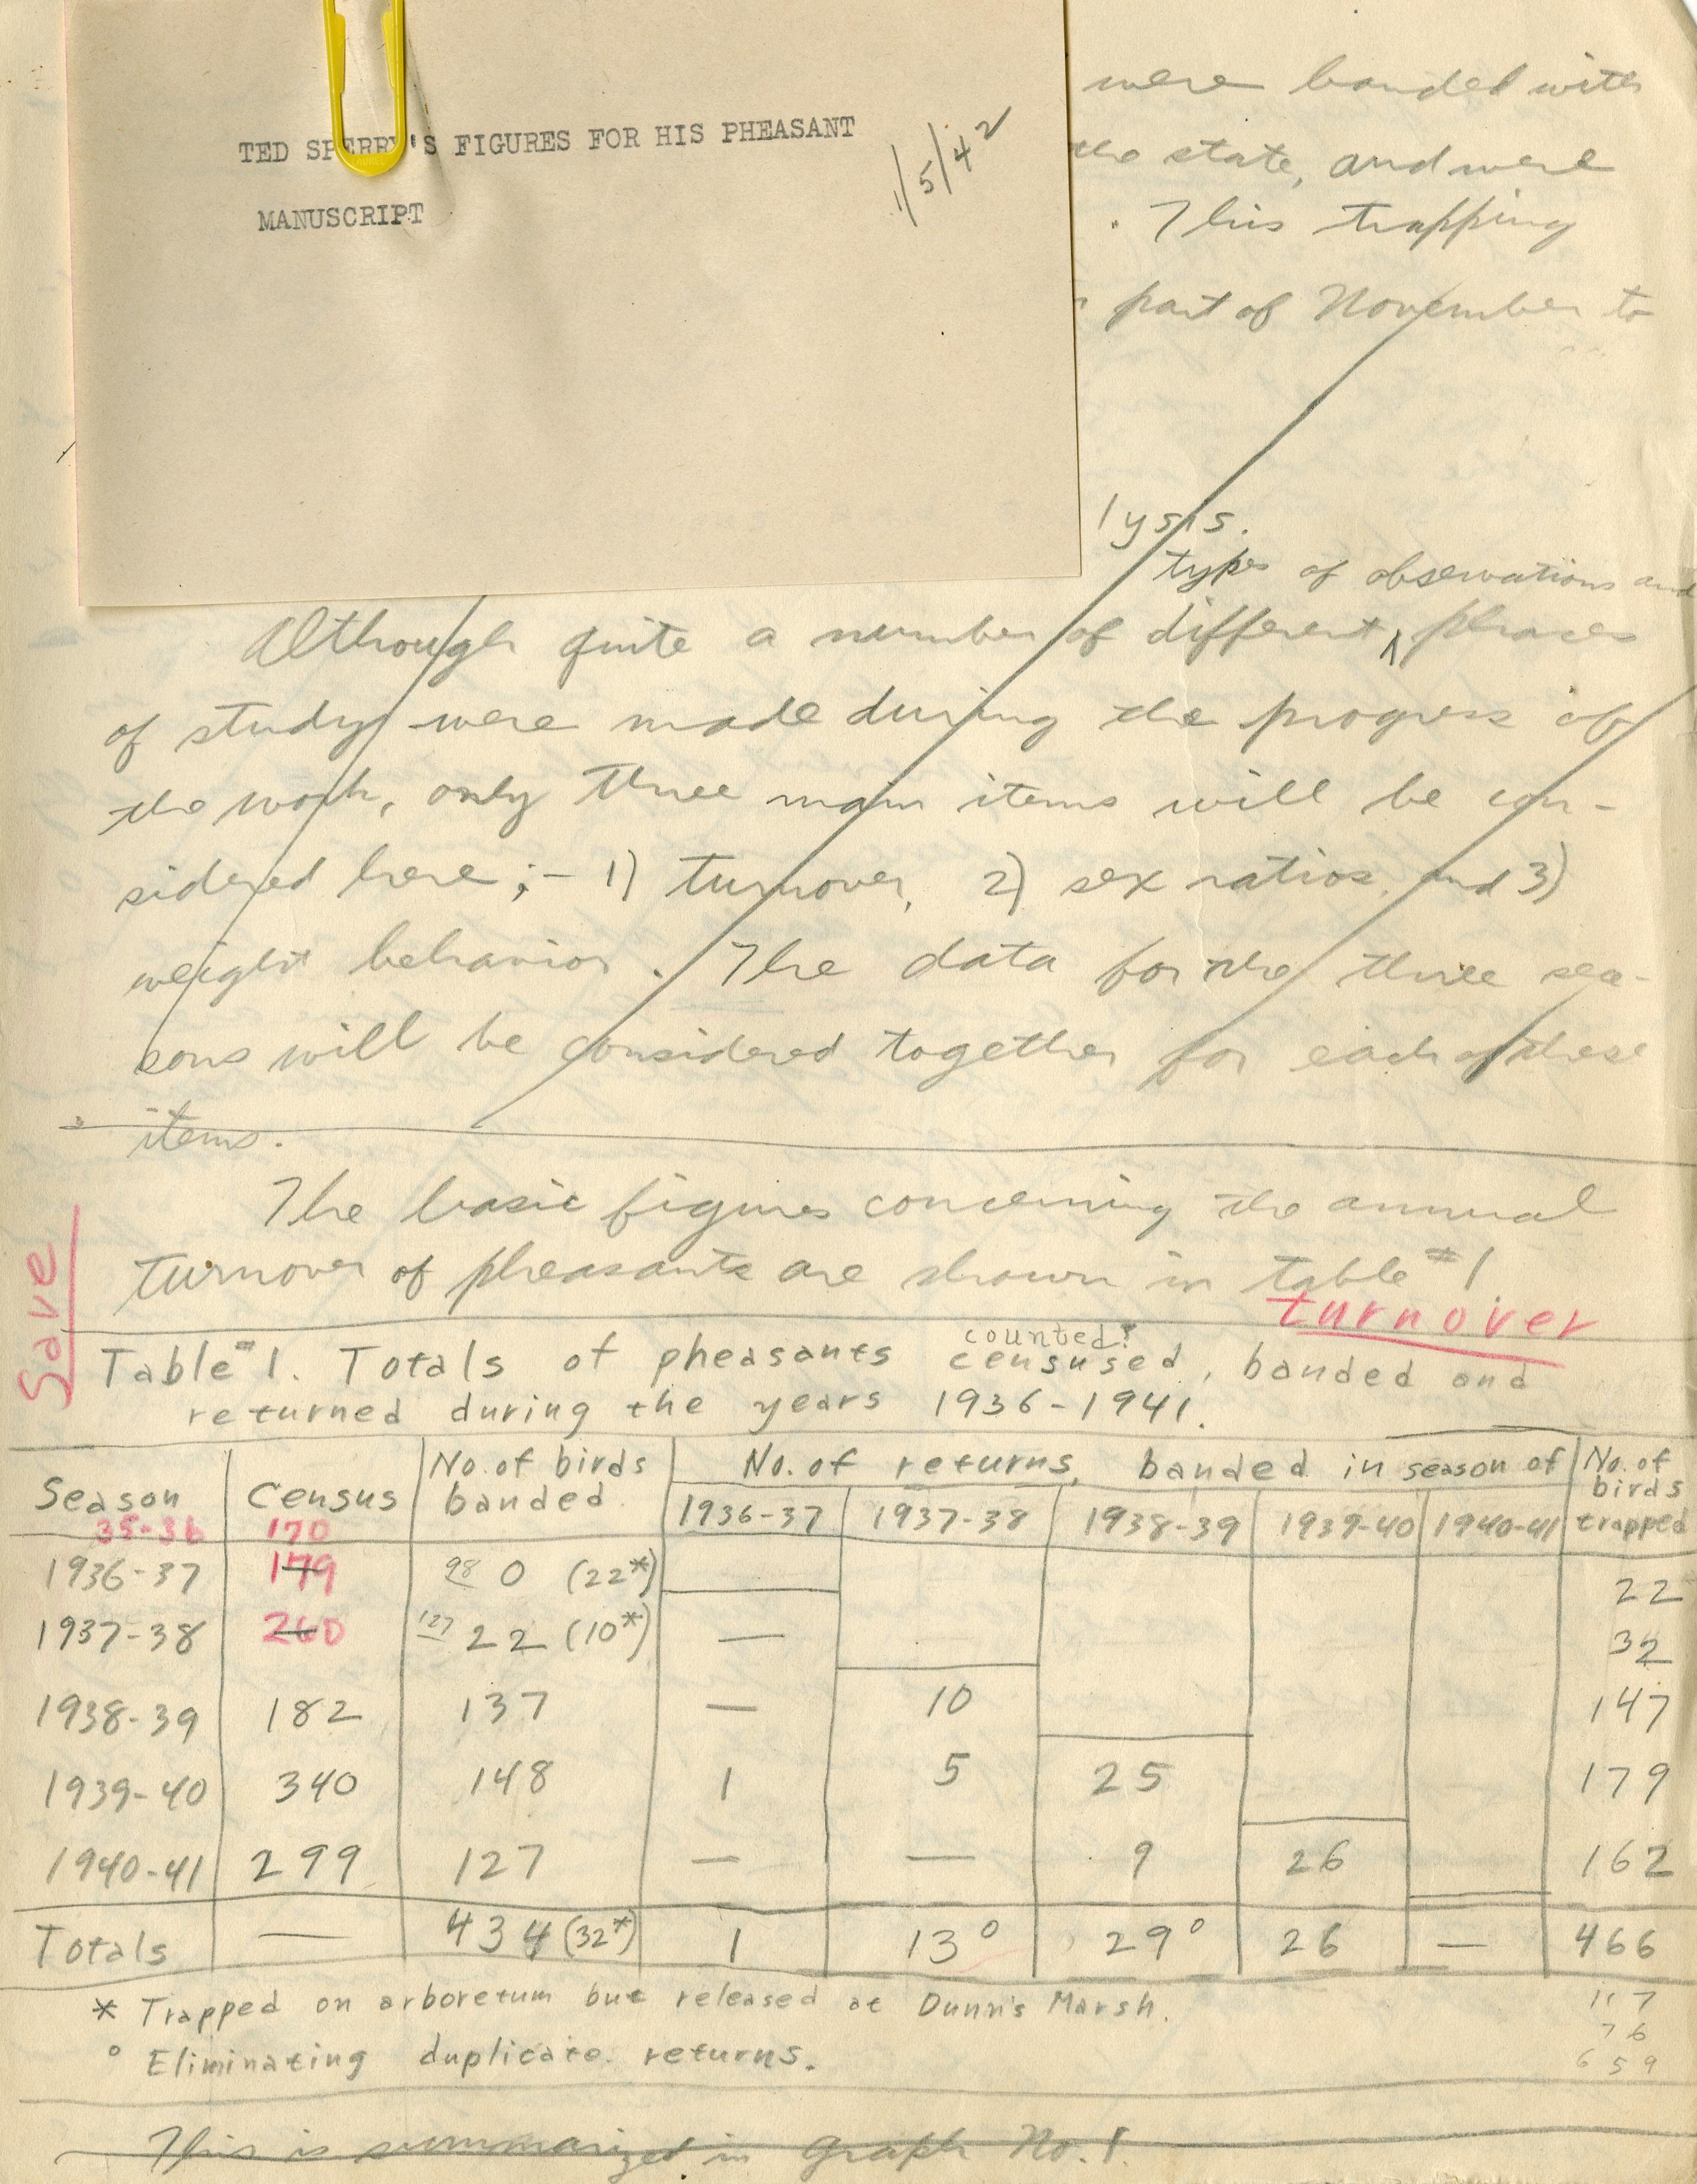 TED SPERRY'S FIGURES FOR HIS PHEASANT
MANUSCRIPT
1/5/42
were banded with
the state, and were
. This trapping
part of November to
lysis.
types of observations and
Although quite a number of different ^ phases
of study were made during the progress of
the work, only three main items will be con-
sidered here;- 1) turnover, 2) sex ratios, and 3)
weight behavior. The data for the three sea-
sons will be considered together for each of these
items.
The basic figures concerning the annual
turnover of pheasants are shown in table #1
Save
turnover
counted?
Table #1. Totals of pheasants censused, banded and
returned during the years 1936-1941.
Season Census No. of birds banded No. of returns, banded in season of No. of birds trapped
1936-37 1937-38 1938-39 1939-40 1940-41
35-36 170
1936-37 179 98 0 (22*) 22
1937-38 260 127 22 (10*) — 32
1938-39 182 137 — 10 147
1939-40 340 148 1 5 25 179
1940-41 299 127 — — 9 26 162
Totals — 434 (32*) 1 13° 29° 26 — 466
* Trapped on arboretum but released at Dunn's Marsh.
117
76
° Eliminating duplicate returns.
659
This is summarized in Graph No. 1.